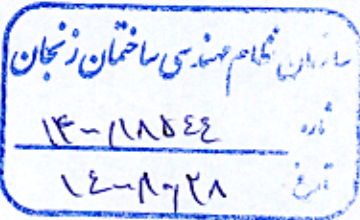 سازمان نظام مهندسی ساختمان زنجان
شماره ۱۴۰۰/۱۸۵۴۴
تاریخ ۱۴۰۰/۸/۲۸